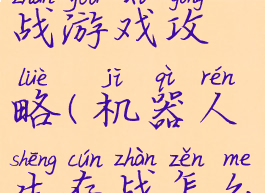 zhàn yóu xì gōng
战游戏攻
lüè jī qì rén
略(机器人
shēng cún zhàn zěn me
生存战怎么